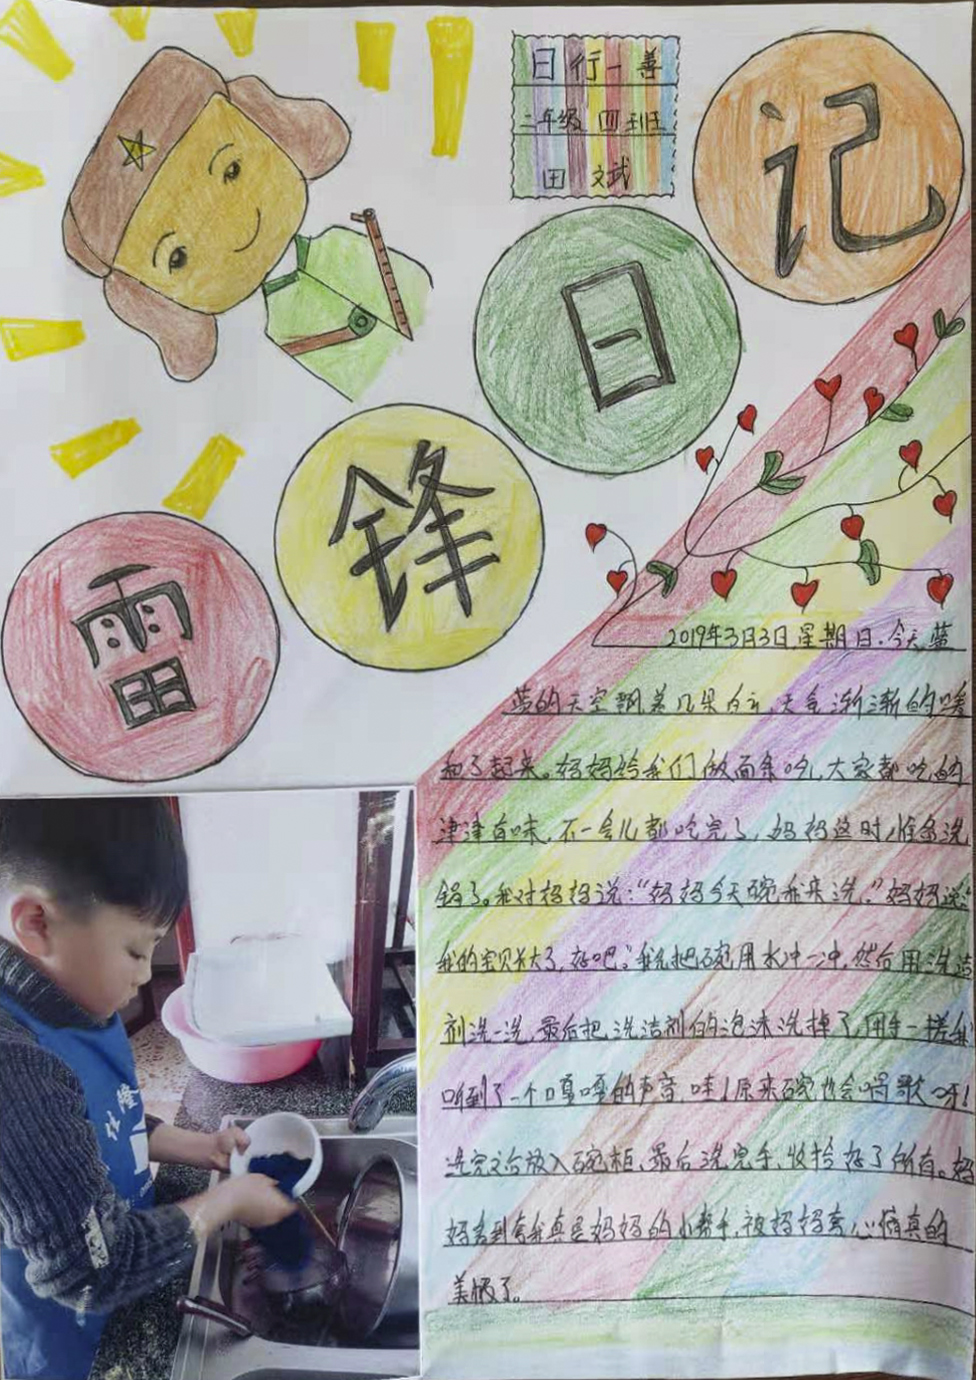 日行一善
二年级四班
田文斌
雷锋日记
2019年3月3日,星期日.今天蓝
蓝的天空飘着几朵白云,天气渐渐的暖
和了起来。妈妈给我们做面条吃,大家都吃的
津津有味,不一会儿都吃完了,妈妈这时准备洗
锅了。我对妈妈说:“妈妈今天碗我来洗。”妈妈说:“
我的宝贝长大了,好吧。”我先把碗用水冲一冲,然后用洗洁
剂洗一洗,最后把洗洁剂的泡沫洗掉了,用手一搓我
听到了一个嘎嘎的声音,哇!原来碗也会唱歌呀!
洗完又放入碗柜,最后洗完手,收拾好了所有。妈
妈看到夸我真是妈妈的小帮手,被妈妈夸心情真的
美极了。
仕隆